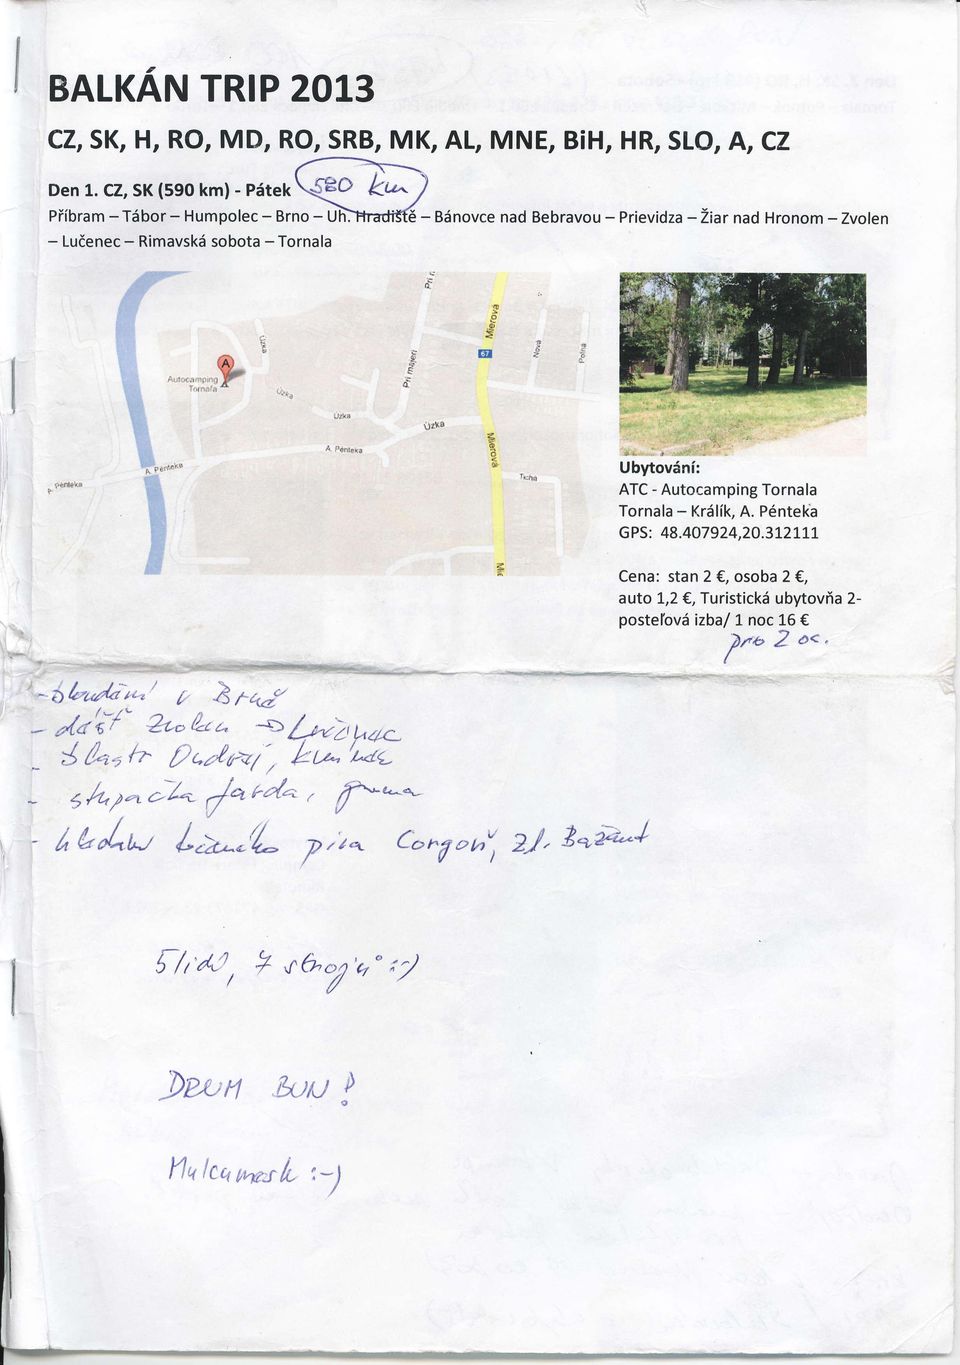 BALKÁN TRIP 2013
CZ, SK, H, RO, MD, RO, SRB, MK, AL, MNE, BiH, HR, SLO, A, CZ
Den 1. CZ, SK (590 km) - Pátek 580 km
Příbram – Tábor – Humpolec – Brno – Uh. Hradiště – Bánovce nad Bebravou – Prievidza – Žiar nad Hronom – Zvolen
– Lučenec – Rimavská sobota – Tornala
Pri m
Mierová
67
Úzka
Pri majeri
Nová
Poľná
A
Autocamping
Tornaľa
Úzka
Úzka
Úzka
A. Pénteka
Mierová
A. Pénteka
A. Pénteka
Tichá
Mie
Ubytování:
ATC - Autocamping Tornala
Tornala – Králík, A. Pénteka
GPS: 48.407924,20.312111
Cena: stan 2 €, osoba 2 €,
auto 1,2 €, Turistická ubytovňa 2-
posteľová izba/ 1 noc 16 €
pro 2 os.
- bloudění v Brně
- déšť Zvolen → Lučenec
- Ondřej,
- stupačka Jarda, guma
- hledání piva Corgoň, Zl. Bažant
5 lidí, 7 strojů :-)
DRUM BUN!
Mulcumesk :-)